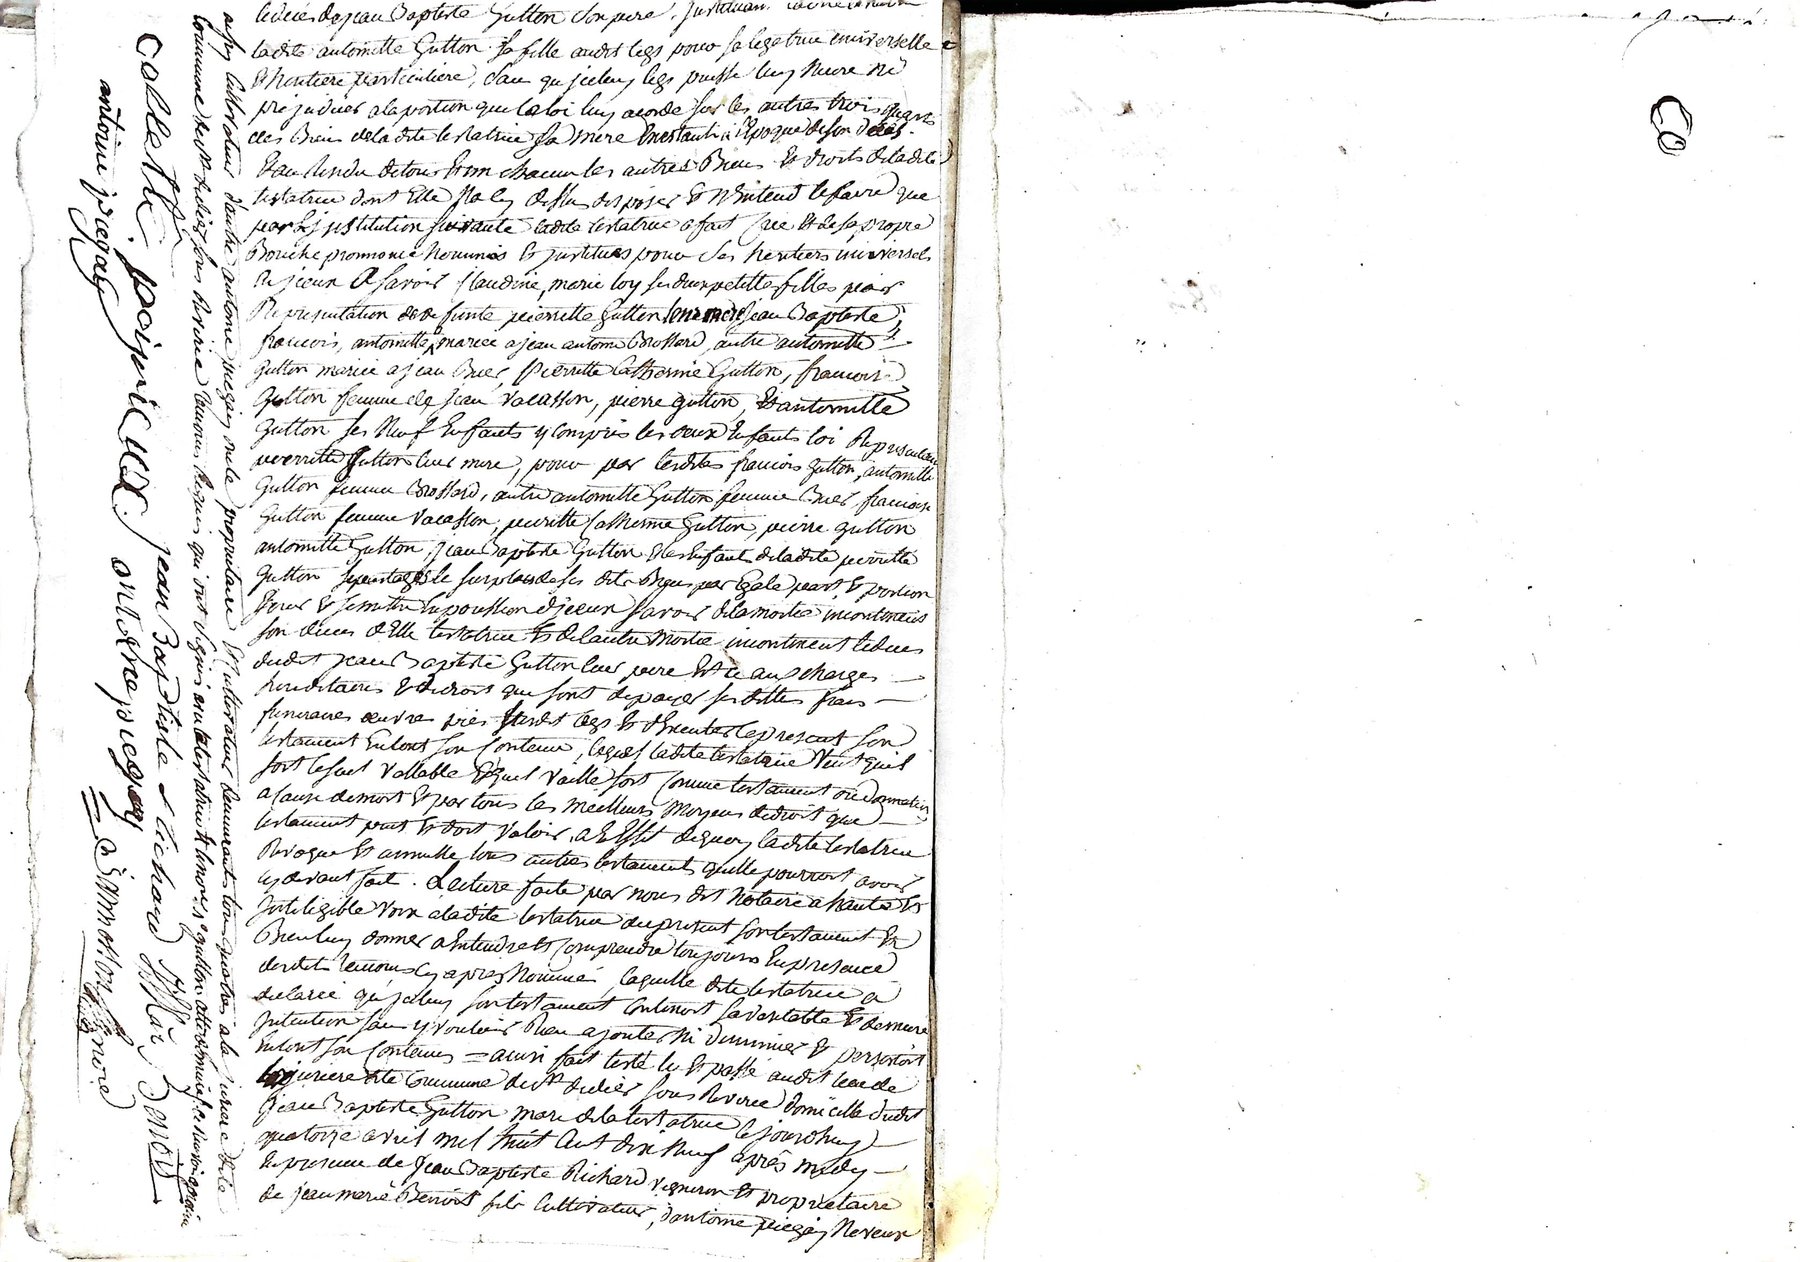 le décès de jean Baptiste Gutton son pere, justituan
ladite antoinette Gutton sa fille audit legs pour sa legatrice universelle
& heritiere particuliere, sans qu'jceluy legs puisse luy nuire ni
prejudicier a la portion que la loi luy acorde sur les autres trois quarts
des Biens de ladite testatrice sa mere Existants à l'Epoque de son décès.
Et au Residu de tous & un chacun les autres Biens & droits de ladite
testatrice dont Elle n'a cy dessus disposé & N'Entend le faire que
par l'justitution suivante ladite testatrice a fait Crée & de sa propre
Bouche prononcé Nommés & justitués pour ses heritiers universels
En jceux a savoir Claudine, marie loy ses deux petittes filles par
Representation de defunte pierrette Gutton leur mere jean Baptiste,
francois, antoinette mariée a jean antoine Brossard, autre antoinette
Gutton mariée a jean Buer, Pierrette Catherine Gutton, francoise
Gutton femme de Jean Vacasson, pierre gutton, & antoinette
Gutton ses Neuf Enfants y compris les deux Enfants loi Representant
pierrette Gutton leur mere, pour par lesdits francois Gutton, antoinette
Gutton femme Brossard, autre antoinette Gutton femme Buer, francoise
Gutton femme Vacasson, pierrette Catherine Gutton, pierre gutton
antoinette Gutton, jean Baptiste Gutton & les Enfants de ladite pierrette
Gutton se partager le surplus de ses dits Biens par Egale part & portion
Jouir & se mettre En possession d'jceux savoir de la moitié incontinent
son décès d'Elle testatrice & de l'autre Moitié incontinent le décès
dudit jean Baptiste Gutton leur pere Et ce aux charges
hereditaires & de droit que sont de payer ses dettes frais
funeraires œuvres pies susdit legs & d'Executer le present son
testament En tout son Contenu, lequel ladite testatrice Veut qu'il
soit le seul vallable & quil vaille soit comme testament ou donnation
a cause de mort & par tous les meilleurs Moyens de droit que
testament peut & doit valoir, a L'Effet de quoy ladite testatrice
Revoque & annulle tous autres testaments qu'elle pourroit avoir
cy devant fait. Lecture faite par nous dit Notaire a haute &
jntelegible voix a ladite testatrice du present son testament &
Bien luy donner a Entendre & Comprendre toujours En presence
desdits temoins cy apres Nommés, laquelle dite testatrice a
declaré qu'jceluy son testament Contenoit sa veritable & derniere
jntention sans y vouloir Rien ajouter ni diminuer & persistoit
En tout son Contenu = ainsi fait testé lu & passé audit lieu de
la juriere dite Commune de St didier sous Riverie domicille dudit
Jean Baptiste Gutton mari de la testatrice Cejourdhuy
quatorze avril mil huit Cent dix Neuf après midy
En presence de Jean Baptiste Richard vigneron & proprietaire
de jean marie Benoit fils Cultivateur, d'antoine piegay Neveux
aussy Cultivateur d'autre antoine piegay oncle proprietaire & Cultivateur demeurants tous quatres a la juriere dite
Commune de St didier sous Riverie temoins Requis qui ont signés
Collette. poijnieux. jean Baptiste Richard J Mar Benoit
antoine piegay antoine piegay